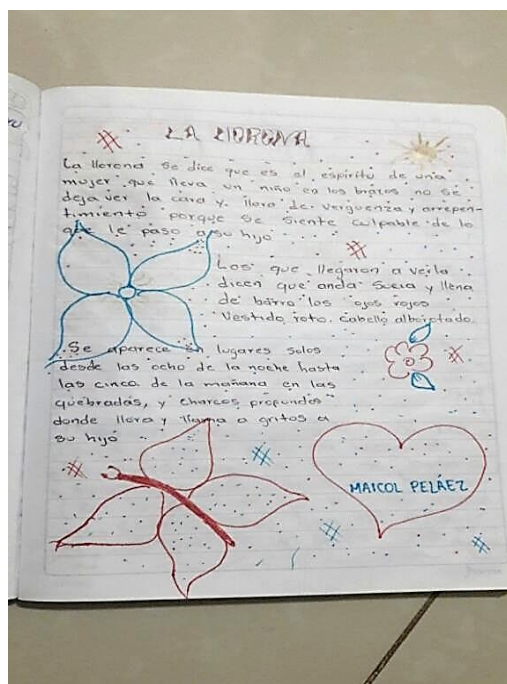 LA LLORONA
La llorona se dice que es el espiritu de una
mujer que lleva un niño en los brazos no se
deja ver la cara y llora de verguenza y arrepen-
timiento porque se siente culpable de lo
que le paso a su hijo
Los que llegaron a verla
dicen que anda sucia y llena
de barro los ojos rojos
Vestido roto. Cabello alborotado.
Se aparece en lugares solos
desde las ocho de la noche hasta
las cinco de la mañana en las
quebradas, y charcos profundos
donde llora y llama a gritos a
su hijo
MAICOL PELÁEZ